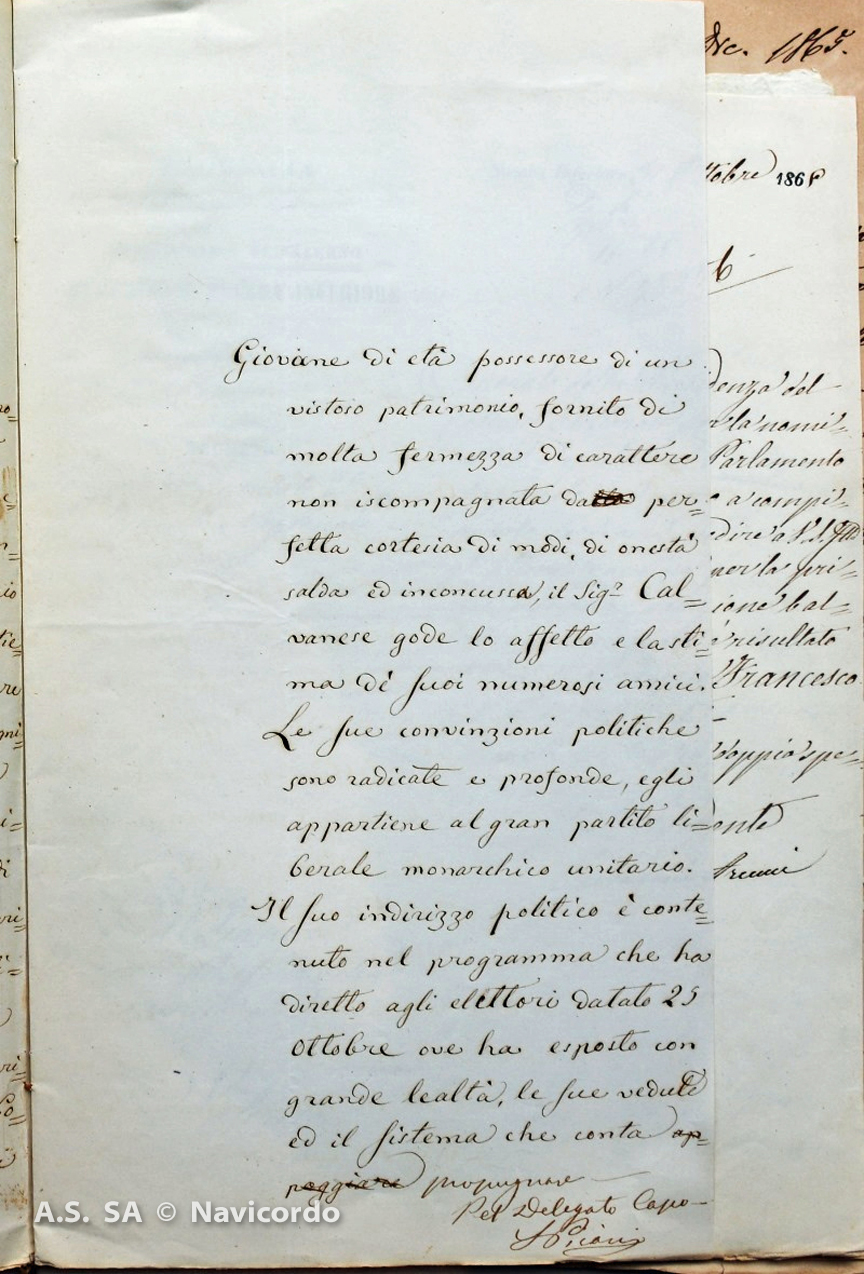 Dic. 1865.
ttobre 1865
Giovane di età possessore di un
vistoso patrimonio, fornito di
molta fermezza di carattere
non iscompagnata da per=
fetta cortesia di modi, di onestà
salda ed inconcussa, il Sigr. Cal=
vanese gode lo affetto e la sti
ma dè suoi numerosi amici.
Le sue convinzioni politiche
sono radicate e profonde, egli
appartiene al gran partito li=
berale monarchico unitario.
Il suo indirizzo politico è conte=
nuto nel programma che ha
diretto agli elettori datato 25
Ottobre ove ha esposto con
grande lealtà, le sue vedute
ed il sistema che conta ap=
poggiare propugnare
Pel Delegato Capo
denza del
la nomi=
Parlamento
a compi=
dire a S. S. Ill
per la pri=
ione bal=
risultato
Francesco
doppio spe=
ente
A.S. SA © Navicordo